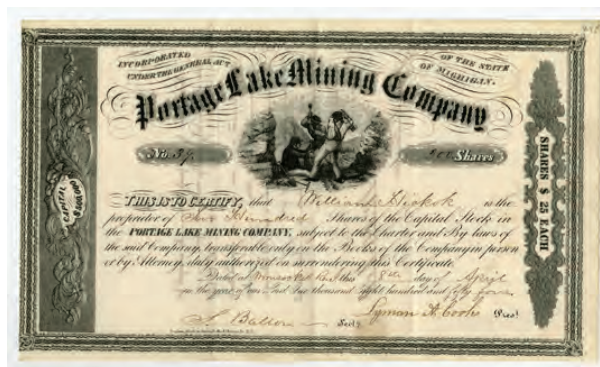 INCORPORATED
UNDER THE GENERAL ACT
OF THE STATE
OF MICHIGAN.
Portage Lake Mining Company
No. 37
Shares
CAPITAL
$500,000
SHARES $ 25 EACH
THIS IS TO CERTIFY, that William Hickok is the
proprietor of Hundred Shares of the Capital Stock in
the PORTAGE LAKE MINING COMPANY, subject to the Charter and By laws of
the said Company, transferable only in the Books of the Company in person
or by Attorney, duly authorized on surrendering this Certificate.
Dated at this 8th day of April
in the year of our Lord One thousand eight hundred and fifty four
S. Secty.
Lyman A. Cooke Prest.